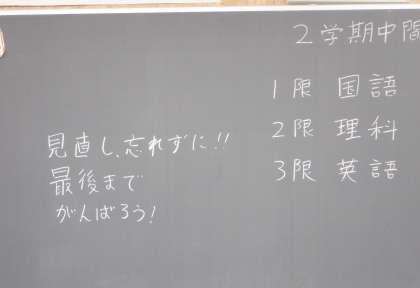 ２学期中間
１限 国語
２限 理科
３限 英語
見直し、忘れずに!!
最後まで
がんばろう!